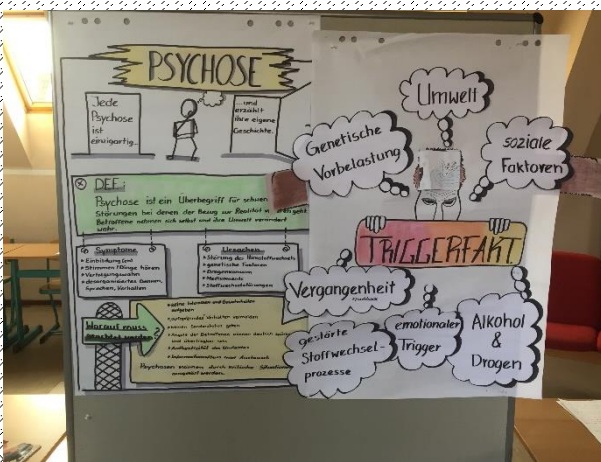 PSYCHOSE
Jede
Psychose
ist
einzigartig...
...und
erzählt
ihre eigene
Geschichte.
DEF.:
Psychose ist ein Überbegriff für schwere
Störungen bei denen der Bezug zur Realität
Betroffene nehmen sich selbst und ihre Umwelt verändert
wahr.
Symptome
Einbildung (en)
Stimmen / Dinge hören
Verfolgungswahn
desorganisiertes Denken,
Sprechen, Verhalten
Ursachen
Störung des Hirnstoffwechsels
genetische Faktoren
Drogenkonsum
Stoffwechselstörungen
Worauf muss
geachtet werden?
Psychosen können durch kritische Situationen
Umwelt
Genetische
Vorbelastung
soziale
Faktoren
TRIGGERFAKT
Vergangenheit
gestörte
Stoffwechsel-
prozesse
emotionaler
Trigger
Alkohol
&
Drogen